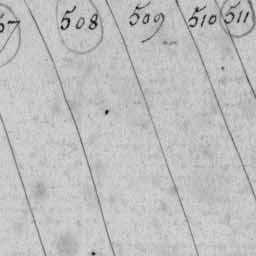 508 509 510 511